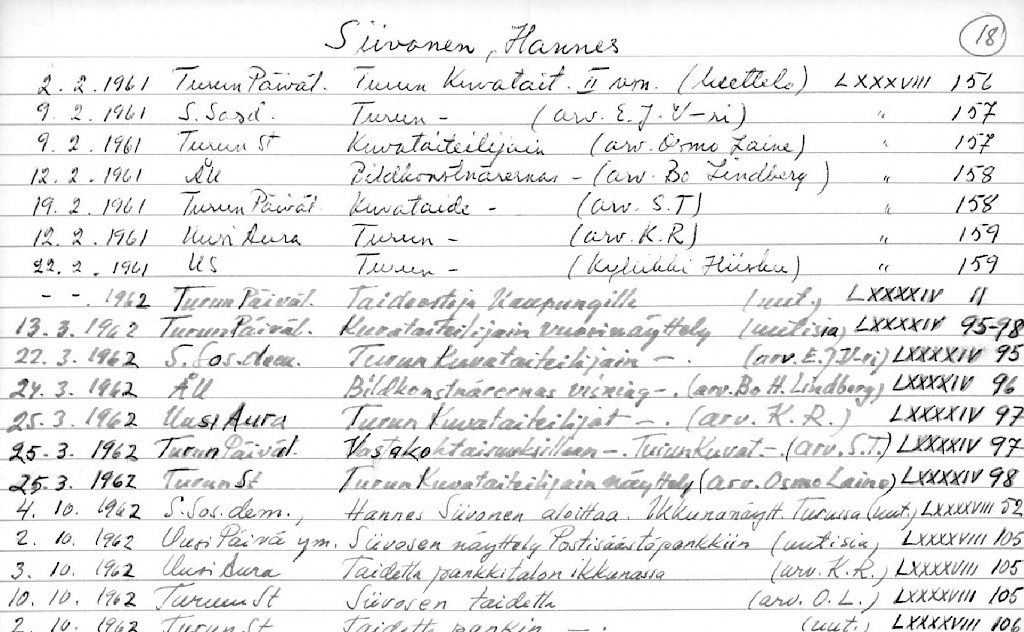 Siivonen, Hannes 18
2.2.1961 Turun Päiväl. Turun Kuvatait. II vm. (luettelo) LXXXVIII 156
9.2.1961 S. Sosd. Turun - (arv. E.J.V-ri) " 157
9.2.1961 Turun St Kuvataiteilijain (arv. Osmo Laine) " 157
12.2.1961 ÅU Bildkonstnärernas - (arv. Bo Lindberg) " 158
19.2.1961 Turun Päiväl. Kuvataide - (arv. S.T) " 158
12.2.1961 Uusi Aura Turun - (arv. K.R) " 159
22.2.1961 US Turun - (Kyllikki Hiisku) " 159
- -. 1962 Turun Päiväl. Taideostoja Kaupungille (uut.) LXXXXIV 11
13.3.1962 Turun Päiväl. Kuvataiteilijain vuosinäyttely (uutisia) LXXXXIV 95-98
22.3.1962 S. Sos.dem. Turun Kuvataiteilijain -. (arv. E.J.V-ri) LXXXXIV 95
24.3.1962 ÅU Bildkonstnärernas visning -. (arv. Bo H. Lindberg) LXXXXIV 96
25.3.1962 Uusi Aura Turun Kuvataiteilijat -. (arv. K.R.) LXXXXIV 97
25.3.1962 Turun Päiväl. -. Turun Kuvat.-. (arv. S.T.) LXXXXIV 97
25.3.1962 Turun St Turun Kuvataiteilijain näyttely (arv. Osmo Laine) LXXXXIV 98
4.10.1962 S. Sos.dem., Hannes Siivonen aloittaa. Ikkunanäytt. Turussa (uut.) LXXXXVIII 52
2.10.1962 Uusi Päivä ym. Siivosen näyttely Postisäästöpankkiin (uutisia) LXXXXVIII 105
3.10.1962 Uusi Aura Taidetta pankkitalon ikkunassa (arv. K.R.) LXXXXVIII 105
10.10.1962 Turun St Siivosen taidetta (arv. O.L.) LXXXXVIII 105
2.10.1962 Turun St Taidetta pankin -. (uut.) LXXXXVIII 106